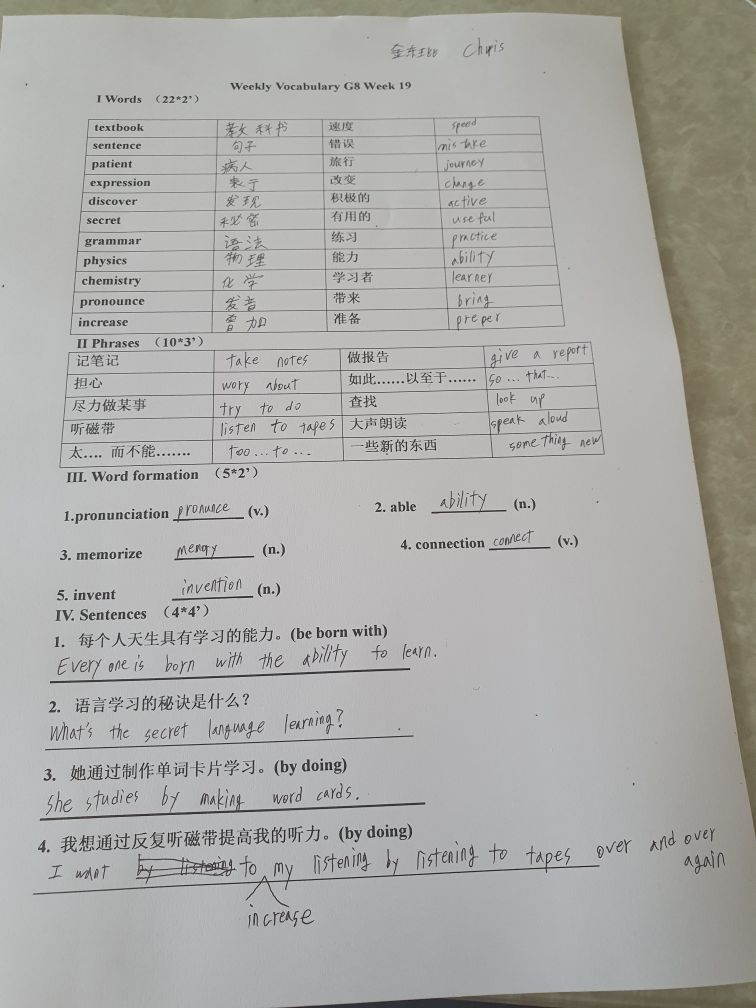 Chris
Weekly Vocabulary G8 Week 19
I Words （22*2’）
textbook 教科书 速度 speed
sentence 句子 错误 mistake
patient 病人 旅行 journey
expression 表于 改变 change
discover 发现 积极的 active
secret 秘密 有用的 useful
grammar 语法 练习 practice
physics 物理 能力 ability
chemistry 化学 学习者 learner
pronounce 发音 带来 bring
increase 曾加 准备 preper
II Phrases （10*3’）
记笔记 take notes 做报告 give a report
担心 wory about 如此……以至于…… so ... that...
尽力做某事 try to do 查找 look up
听磁带 listen to tapes 大声朗读 speak aloud
太…. 而不能……. too ... to ... 一些新的东西 something new
III. Word formation （5*2’）
1.pronunciation pronunce (v.) 2. able ability (n.)
3. memorize (n.) 4. connection connect (v.)
5. invent invention (n.)
IV. Sentences （4*4’）
1. 每个人天生具有学习的能力。(be born with)
Every one is born with the ability to learn.
2. 语言学习的秘诀是什么？
What's the secret language learning?
3. 她通过制作单词卡片学习。(by doing)
She studies by making word cards.
4. 我想通过反复听磁带提高我的听力。(by doing)
I want by listening to my listening by listening to tapes over and over again
increase